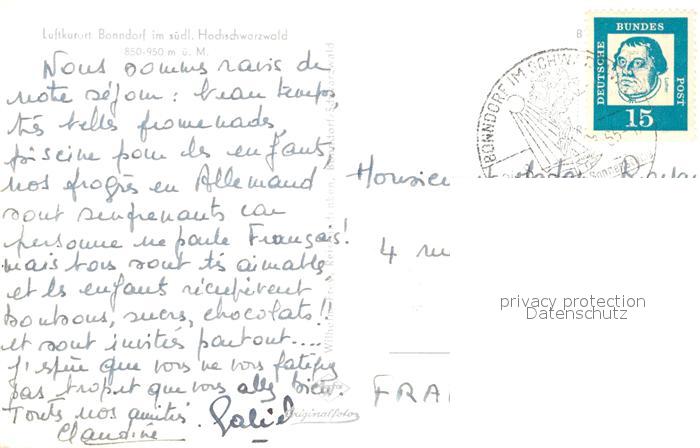 Luftkurort Bonndorf im südl. Hochschwarzwald
850-950 m ü. M.
Nous sommes ravis de
notre séjour : beau temps,
très belles promenades,
piscine pour les enfants,
nos progrès en Allemand
sont surprenants car
personne ne parle Français!
mais tous sont très aimables
et les enfants récupèrent
bonbons, sucres, chocolats!!
et sont invités partout....
J'espère que vous ne vous fatiguez
pas trop et que vous allez bien.
Toutes nos amitiés.
Claudine
Originalfotos
BONNDORF IM SCHW
DEUTSCHE BUNDESPOST
15
Monsieur et
4 rue
FRA
privacy protection
Datenschutz